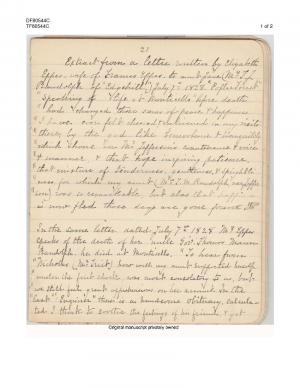 DF80544C
TF80544C
1 of 2
21
Extract from a letter written by Elizabeth
Eppes, wife of Francis Eppes, to aunt Jane (Mrs T. J.
Randolph of Edgehill) July 7th 1828. Poplar Forest
Speaking of life at Monticello before death
"had changed those scenes of peace & happiness
"I have ever felt cheered & enlivened in my visits
"there, by the and like benevolence & tranquility
which shone in Mr Jefferson's countenance & voice
& manner, & that hope inspiring patience,
that mixture of tenderness, gentleness, & sprightli-
ness for which my aunt (Mrs T. M. Randolph, née Jeffer-
son) was so remarkable, but alas that happiness
is now fled those days are gone forever
In the same letter dated July 7th 1828 Mrs Eppes
speaks of the death of her uncle Gov. Thomas Mann
Randolph he died at Monticello. "To hear from
Nicholas (Mr Trist) how well my aunt supported herself
under the first shock, was most consolatory to us, but
we still feel great apprehension on her account. In the
last "Enquirer" there is a handsome obituary, calcula-
ted I think to soothe the feelings of his friends & yet
Original manuscript privately owned